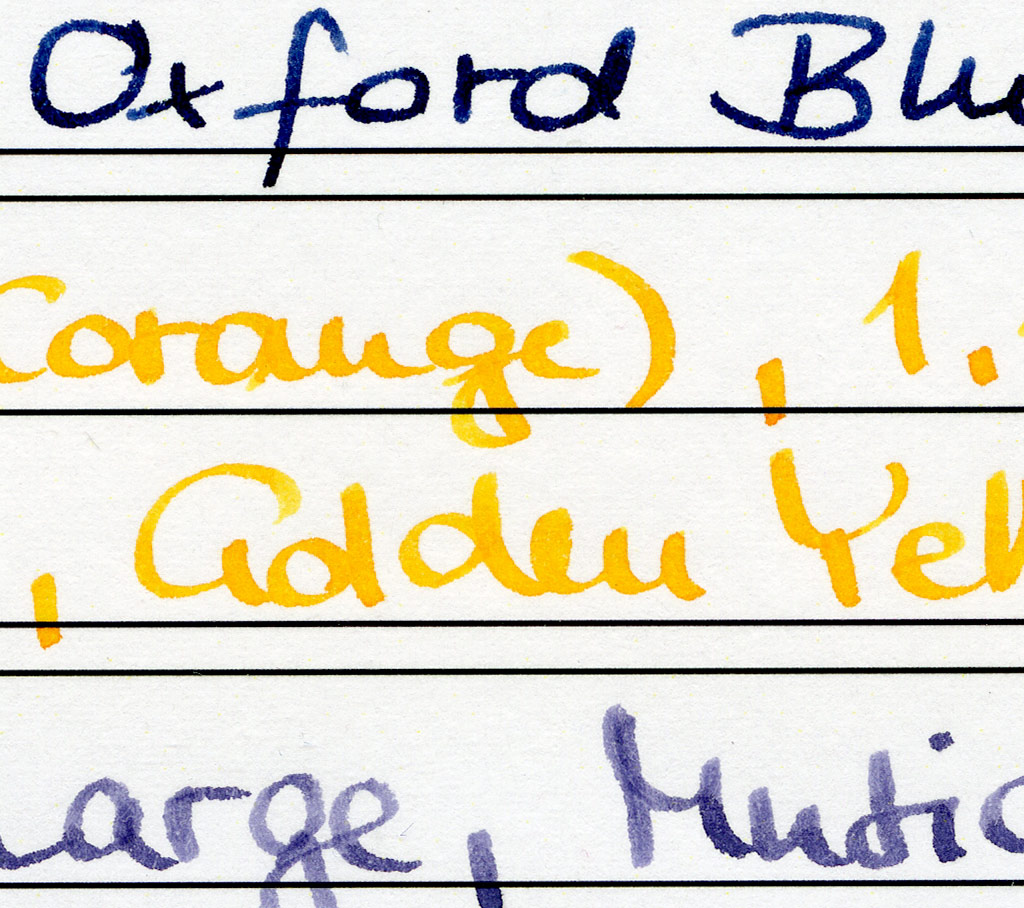 Oxford Blu
(orange), 1.
, Golden Yell
large, Music